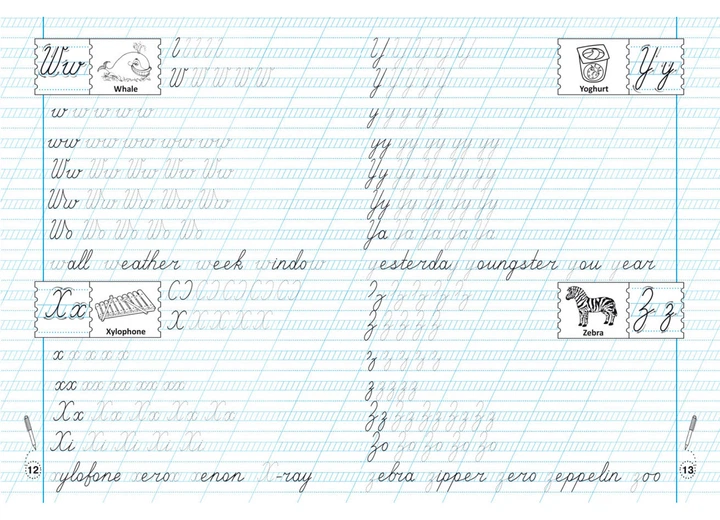 Ww
Whale
W W W W W W
w w w w w w
ww ww ww ww ww ww
Ww Ww Ww Ww Ww
wall weather week window
Xx
Xylophone
X X X X X X
x x x x x
xx xx xx xx xx
Xx Xx Xx Xx Xx
Xi Xi Xi Xi Xi
xylofone xerox xenon X-ray
12
Yy
Yoghurt
Y Y Y Y Y
y y y y y
yy yy yy yy yy
Yy Yy Yy Yy Yy
Yy Yy Yy Yy Yy
Ya Ya Ya Ya Ya
yesterday youngster you year
Zz
Zebra
Z Z Z Z Z Z
z z z z z
Zz Zz Zz Zz Zz
Zo Zo Zo Zo Zo
zebra zipper zero zeppelin zoo
13